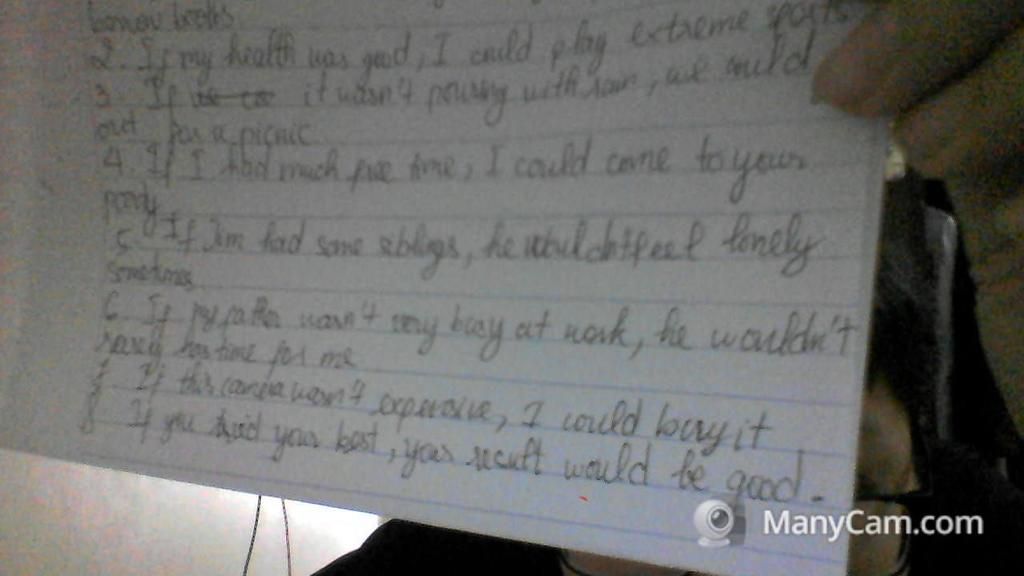 borrow books.
2. If my health was good, I could play extreme sports
3. If it wasn't pouring with rain, we could
out for a picnic
4. If I had much free time, I could come to your
party
5. If Jim had some siblings, he wouldn't feel lonely
sometimes
6. If my father wasn't very busy at work, he wouldn't
rarely has time for me
7. If this camera wasn't expensive, I could buy it
8. If you tried your best, your result would be good.
ManyCam.com